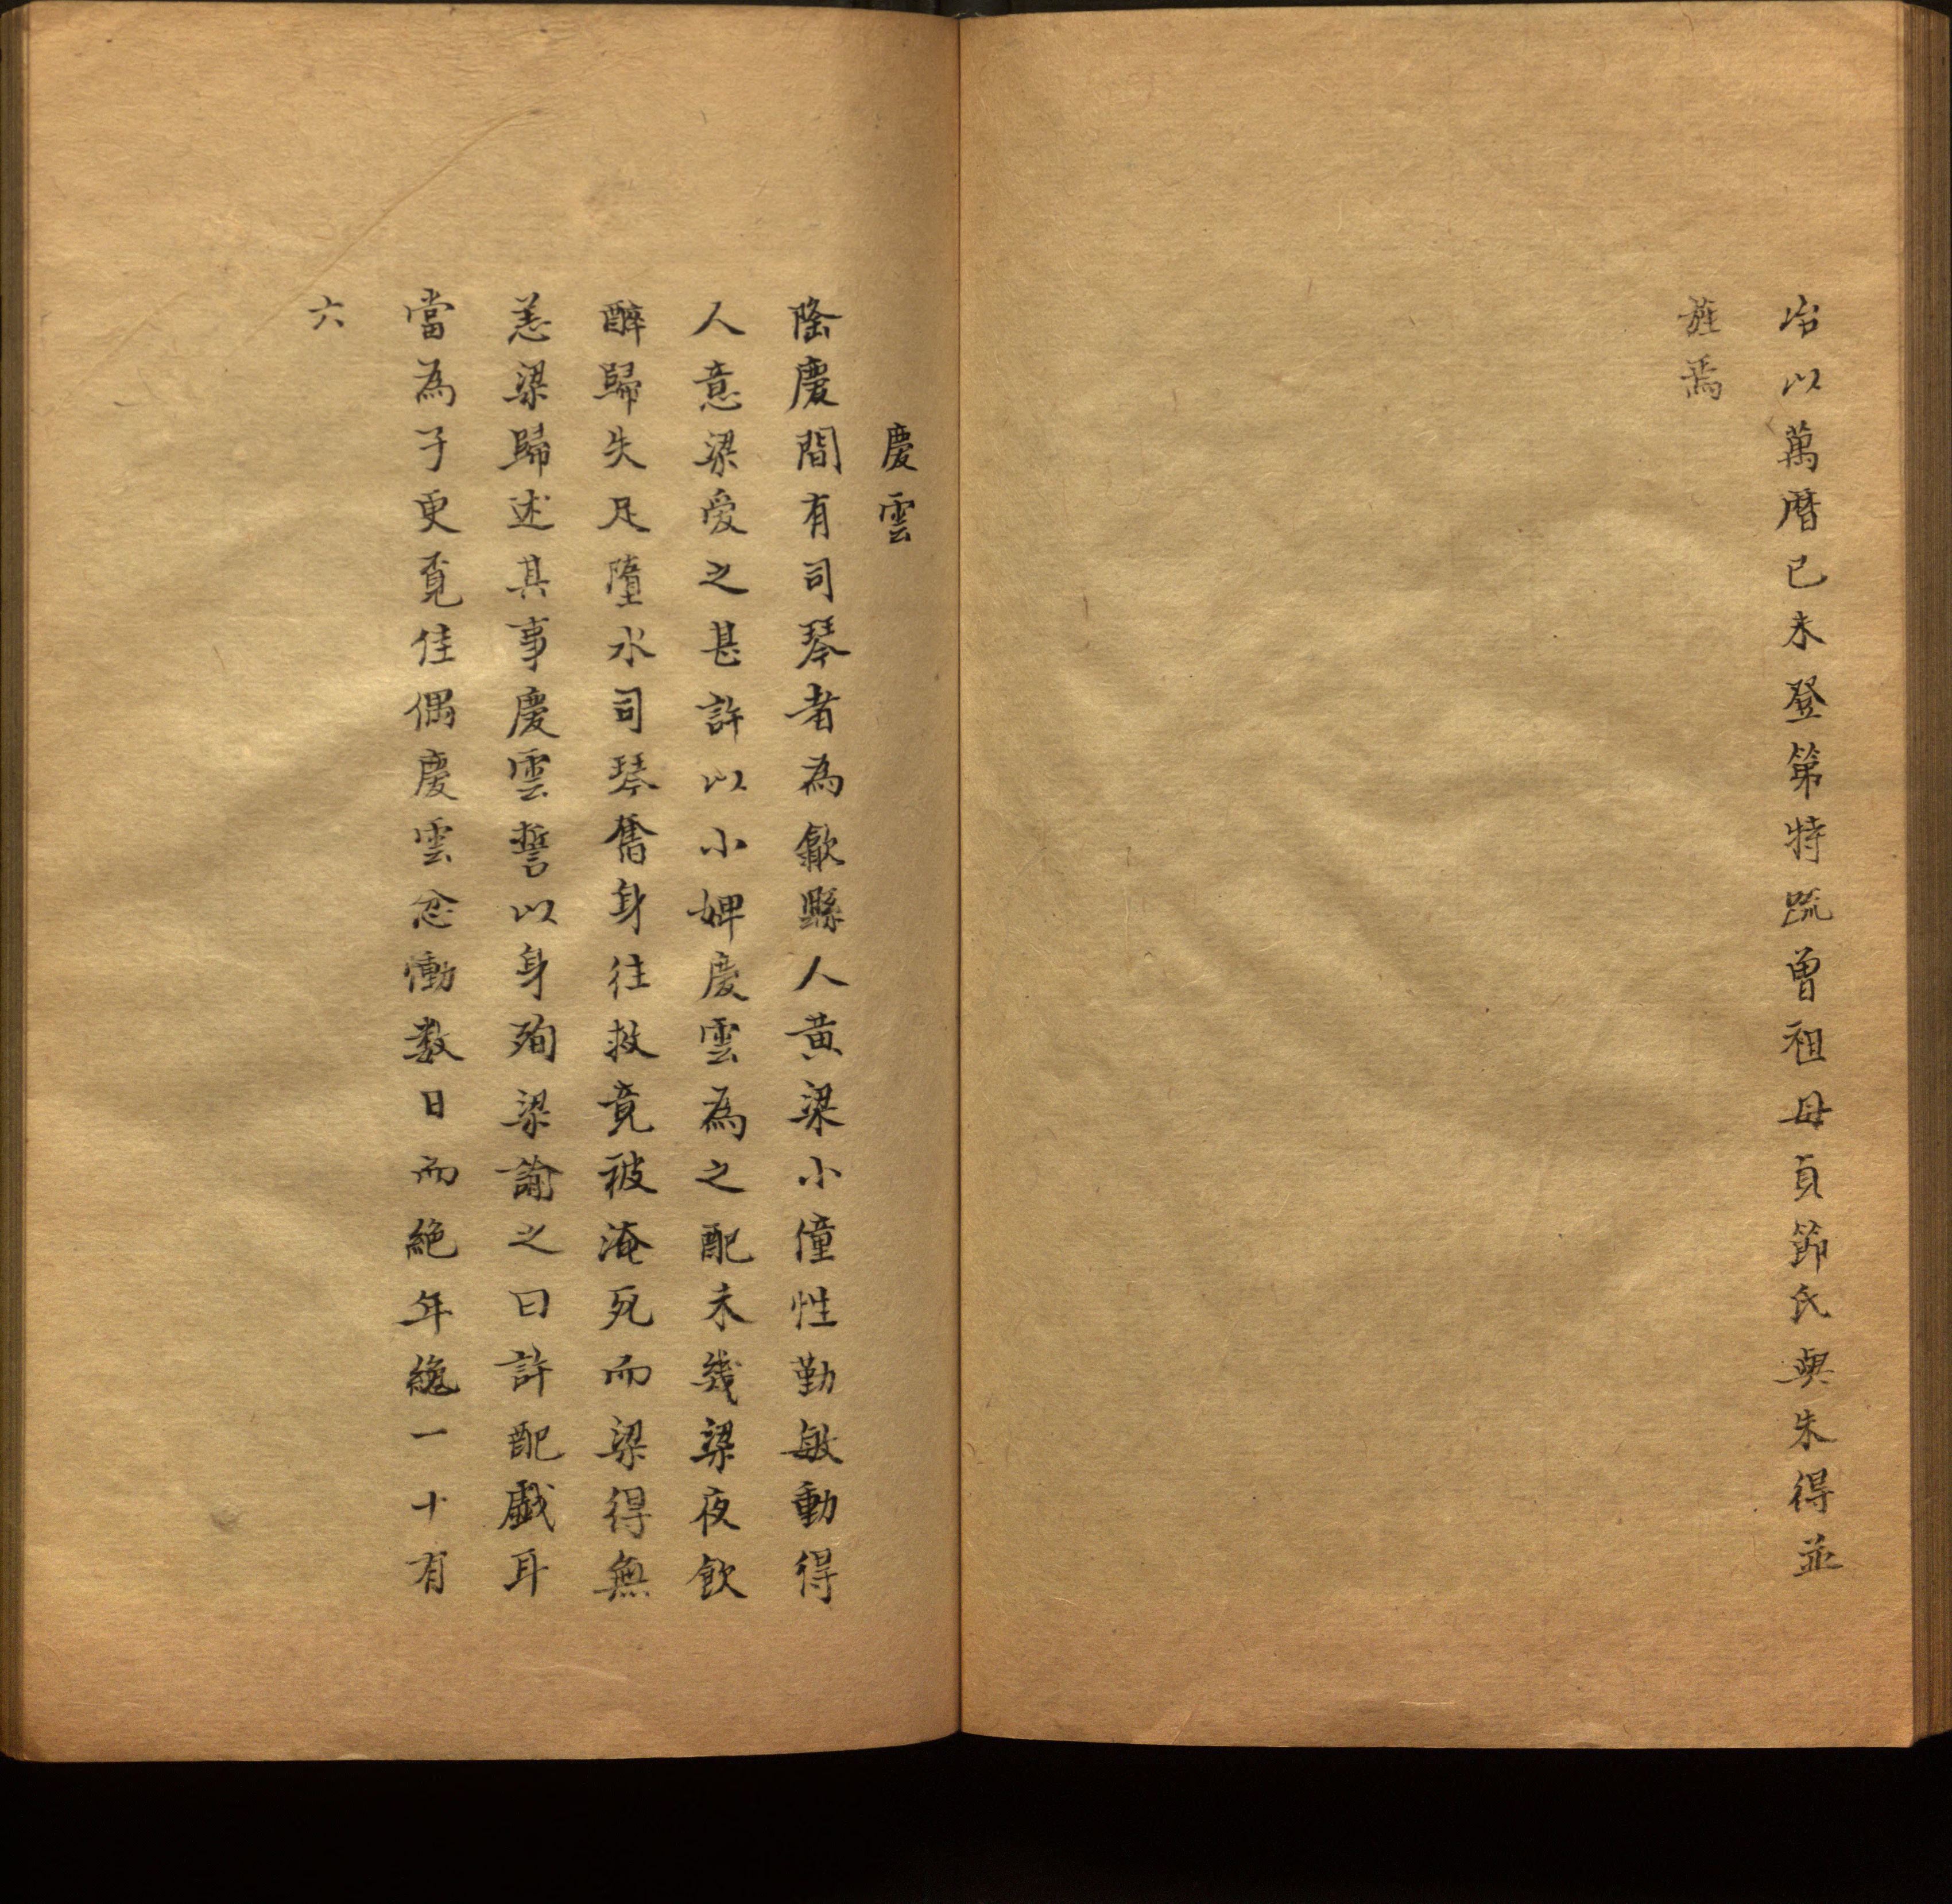 冶以萬曆己未登第特疏曾祖母貞節氏與朱得並
旌焉
慶雲
隆慶間有司琴者為歙縣人黃梁小僮性勤敏動得
人意梁愛之甚許以小婢慶雲為之配未幾梁夜飲
醉歸失足墮水司琴奮身往救竟被淹死而梁得無
恙梁歸述其事慶雲誓以身殉梁諭之曰許配戲耳
當為子更覓佳偶慶雲忿慟数日而絕年纔一十有
六